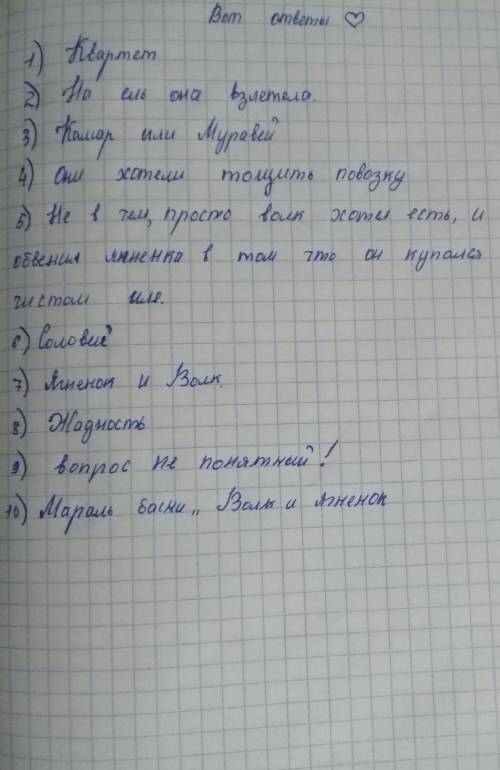 Вот ответы ♡
1) Квартет
2) На ель она взлетела.
3) Комар или Муравей
4) Они хотели тощить повозку
5) Не в чем, просто волк хотел есть, и
обвенил ягненка в том что он купался
чистом иле.
6) Соловей
7) Ягненок и Волк.
8) Жадность
9) вопрос не понятный!
10) Мараль басни „ Волк и ягненок